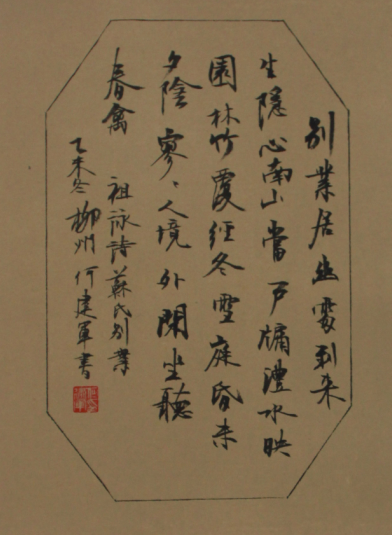 别業居幽處到来
生隱心南山當户牖澧水映
園林竹覆經冬雪庭昏未
夕陰寥〻人境外閑坐聽
春禽
祖詠詩蘇氏别業
乙未冬柳州何建軍書